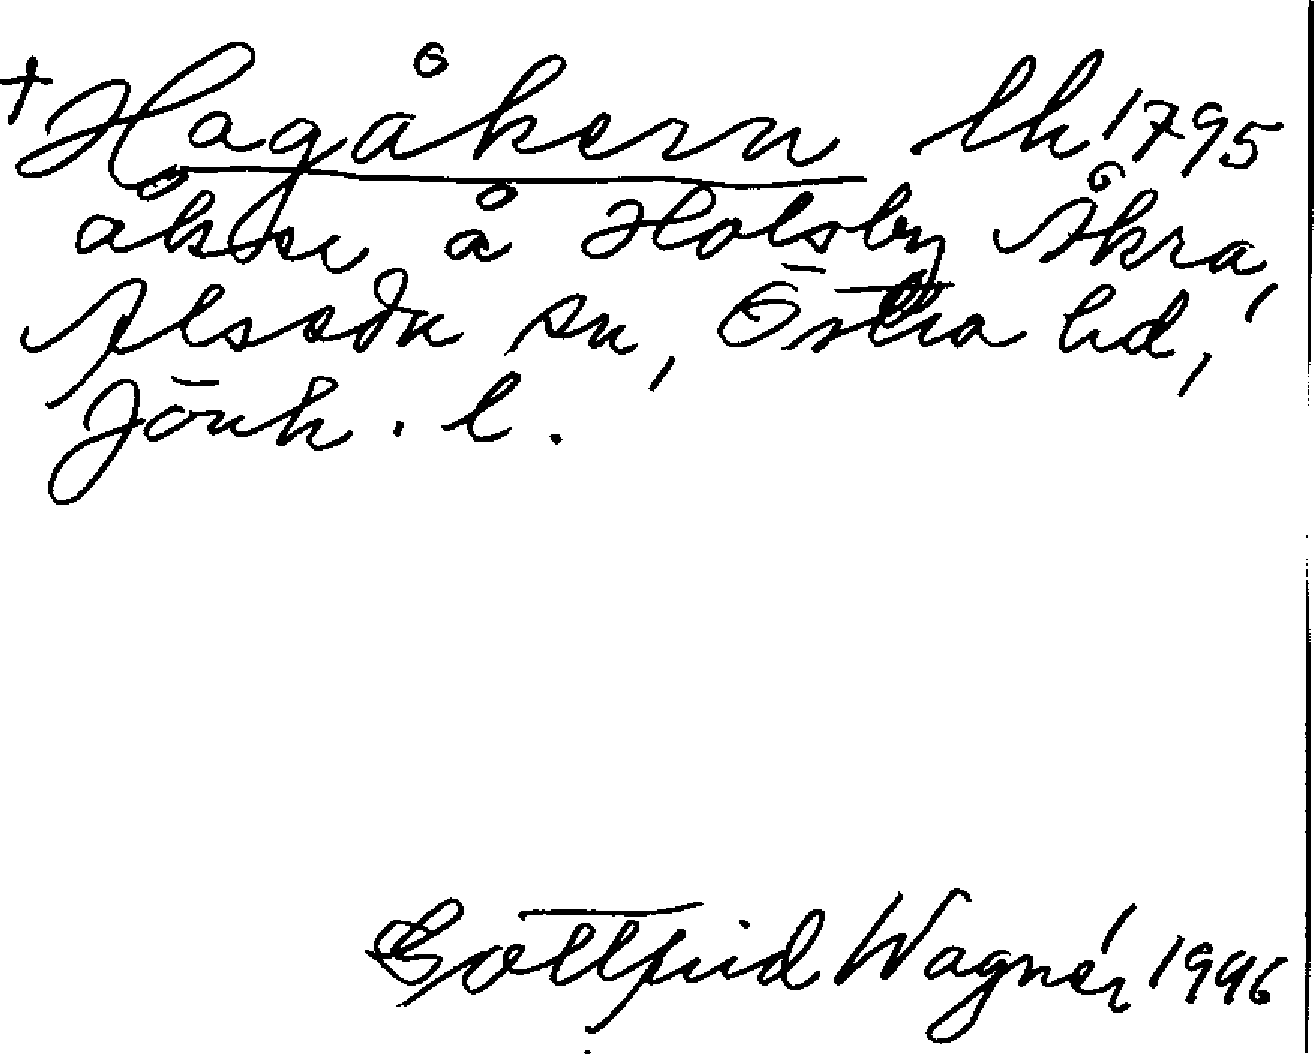 † Hagåkern lh 1795
åker å Holsby Åkra,
Alseda sn, Östra hd,
Jönk. l.
Gottfrid Wagnér 1996